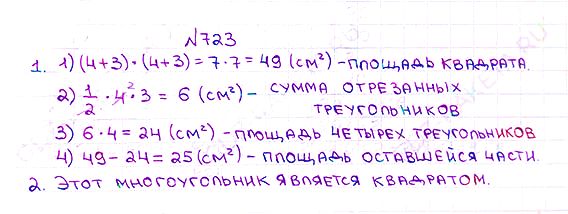 №723
1. 1) (4+3)·(4+3)=7·7=49 (см²) – площадь квадрата.
2) 1/2 · 4² · 3 = 6 (см²) – сумма отрезанных
треугольников
3) 6·4=24 (см²) – площадь четырех треугольников
4) 49–24=25(см²) – площадь оставшейся части.
2. Этот многоугольник является квадратом.